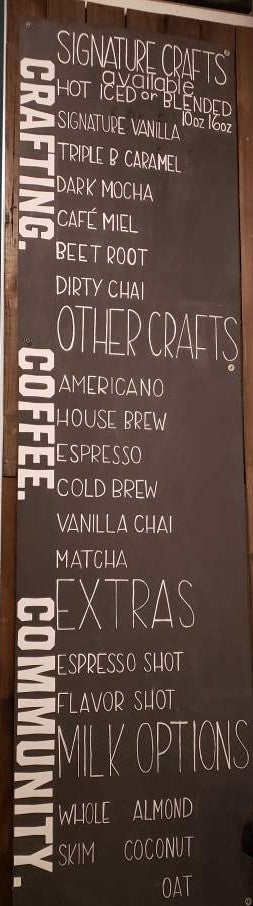 CRAFTING.
COFFEE.
COMMUNITY.
SIGNATURE CRAFTS
available
HOT ICED or BLENDED
10oz 16oz
SIGNATURE VANILLA
TRIPLE B CARAMEL
DARK MOCHA
CAFÉ MIEL
BEET ROOT
DIRTY CHAI
OTHER CRAFTS
AMERICANO
HOUSE BREW
ESPRESSO
COLD BREW
VANILLA CHAI
MATCHA
EXTRAS
ESPRESSO SHOT
FLAVOR SHOT
MILK OPTIONS
WHOLE ALMOND
SKIM COCONUT
OAT